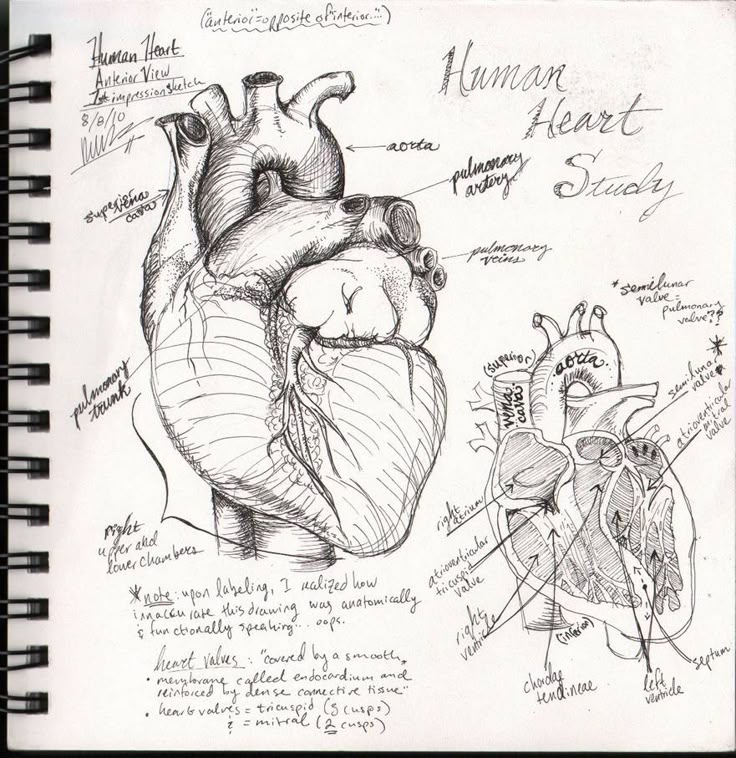 ("anterior"=opposite of "interior...")
Human Heart
Anterior View
1st impression sketch
8/8/10
Human
Heart
Study
aorta
pulmonary
artery
superior
vena
cava
pulmonary
veins
pulmonary
trunk
right
upper and
lower chambers
*semilunar
valve =
pulmonary
valve??
(superior)
vena
cava
aorta
semilunar
valve
atrioventricular
mitral
valve
right
atrium
atrioventricular
tricuspid
valve
right
ventricle
(inferior)
chordae
tendineae
left
ventricle
septum
*note: upon labeling, I realized how
innaccurate this drawing was anatomically
& functionally speaking... oops.
heart valves: "covered by a smooth,
• membrane called endocardium and
reinforced by dense connective tissue"
• heart valves = tricuspid (3 cusps)
& = mitral (2 cusps)